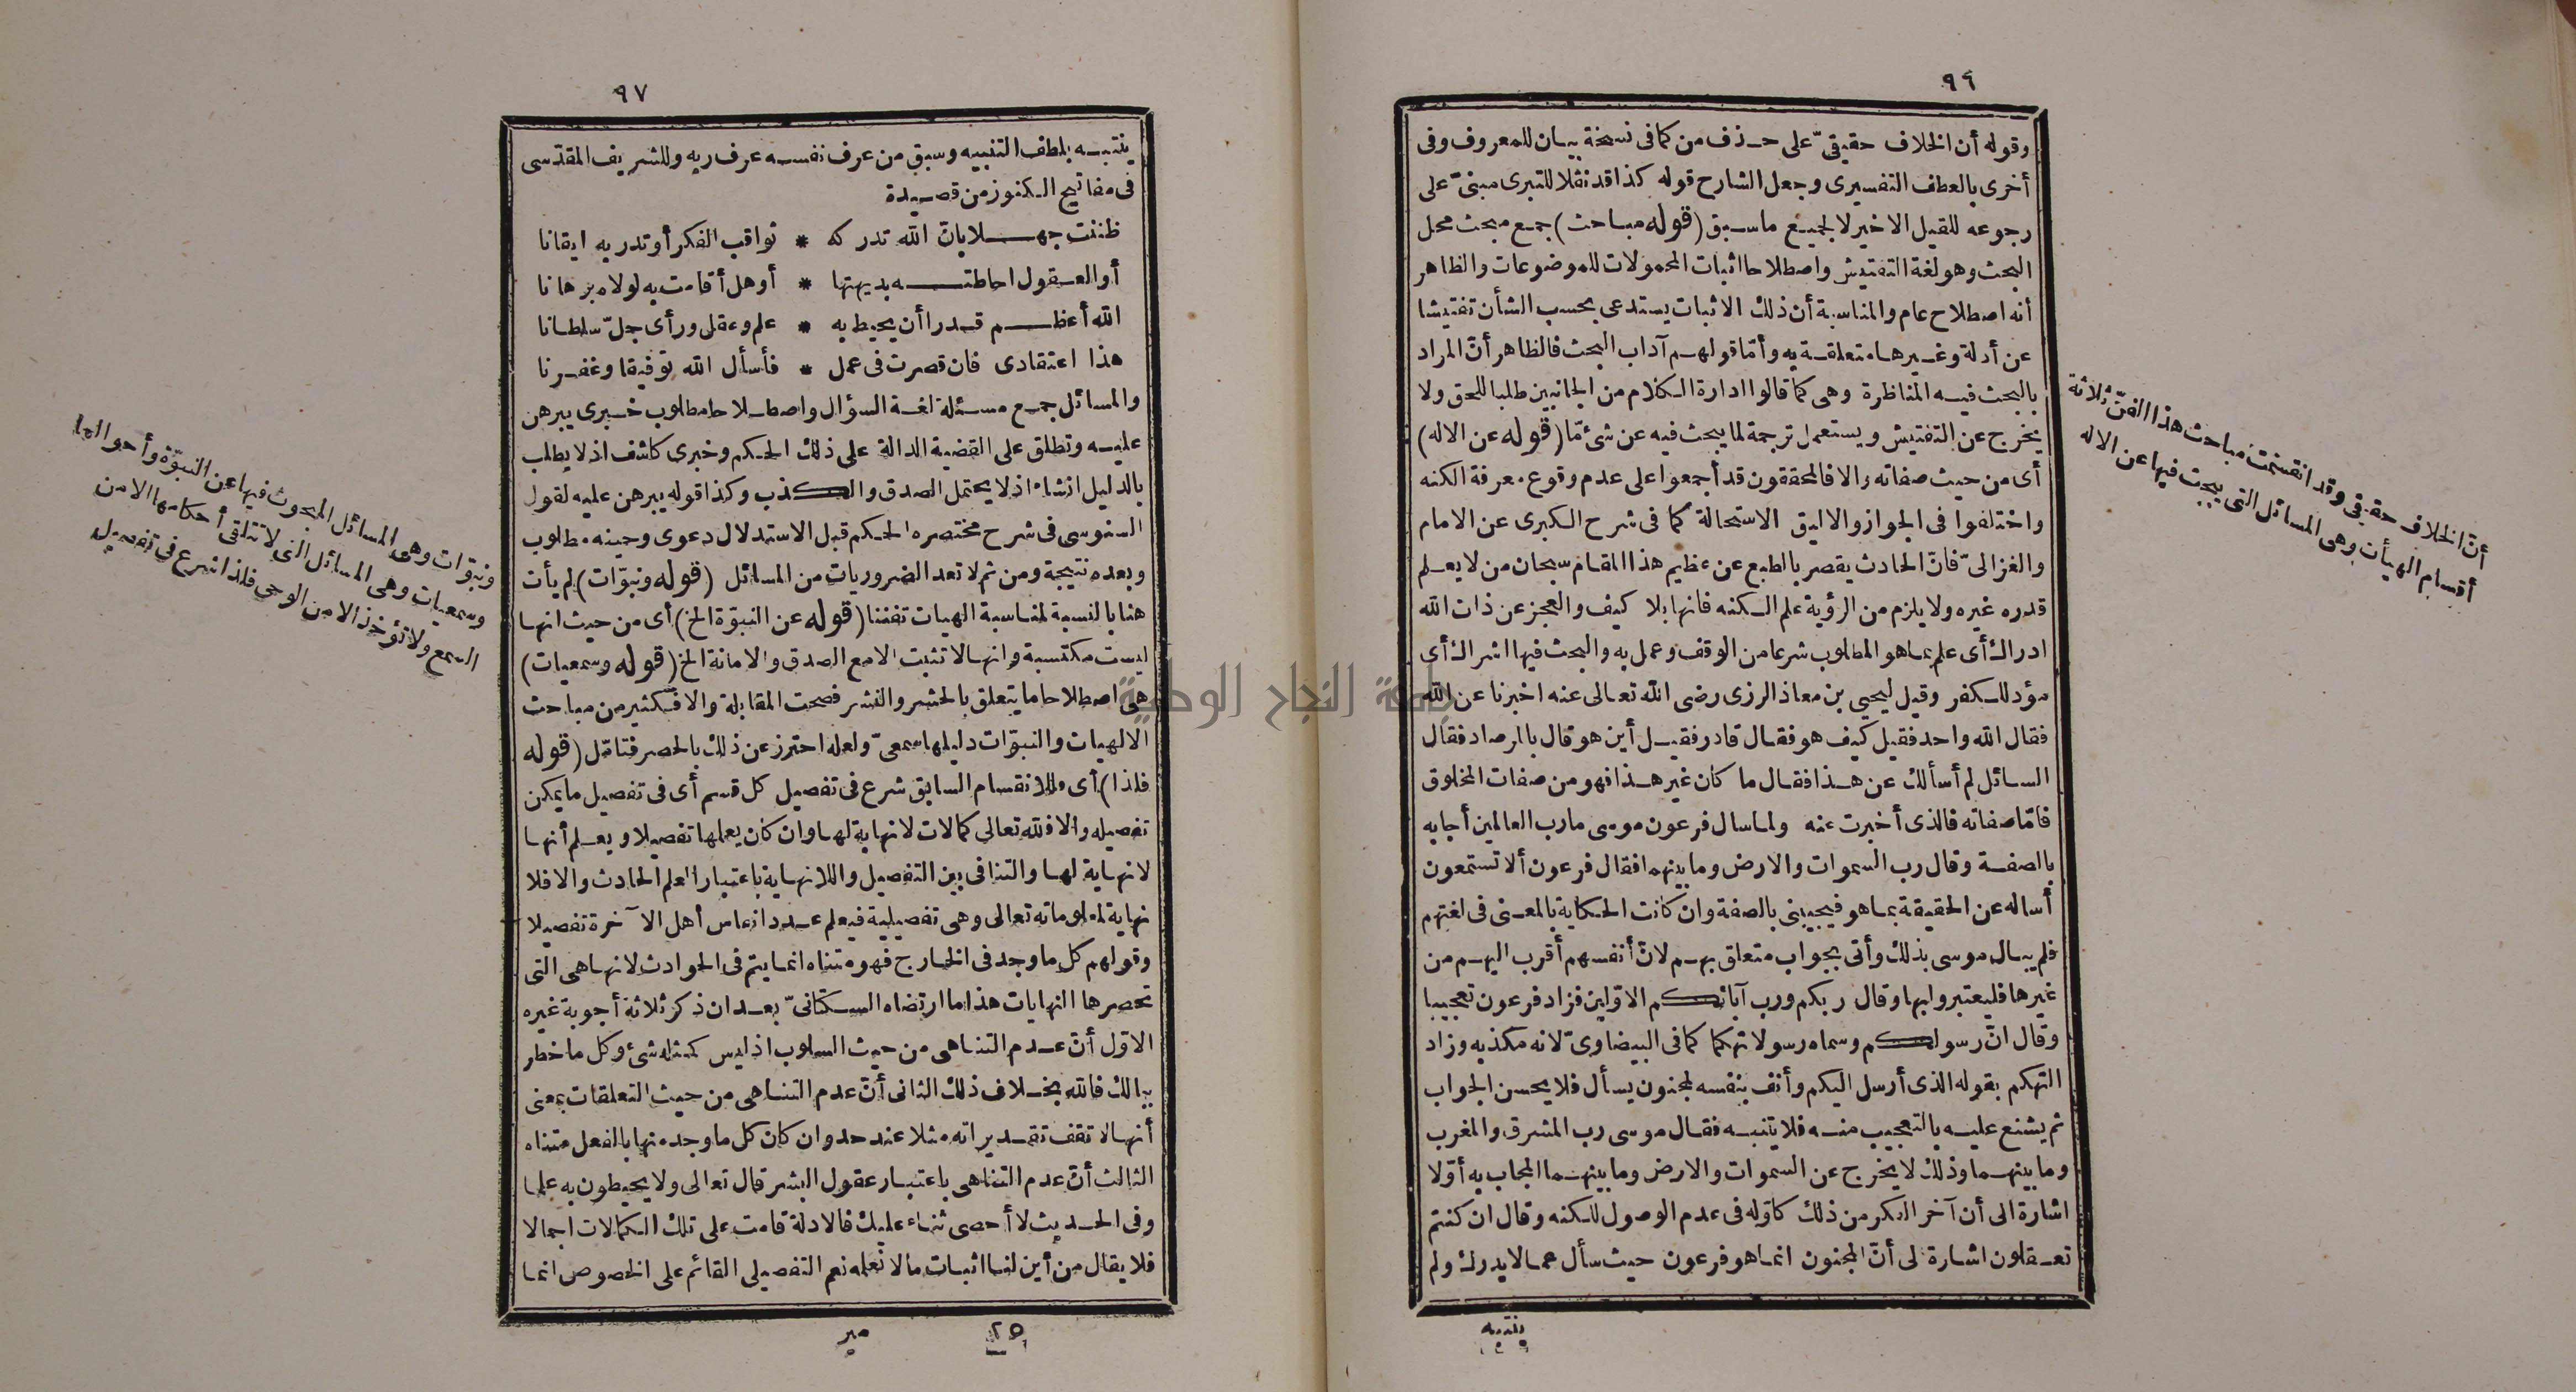 ٩٦
وقوله أن الخلاف حقيقىّ على حذف من كما فى نسخة بيان للمعروف وفى
أخرى بالعطف التفسيرى وجعل الشارح قوله كذا قد نقلا للتبرى مبنىّ على
رجوعه للقيل الاخير لا لجميع ما سبق (قوله مباحث) جمع مبحث محل
البحث وهو لغة التفتيش واصطلاحا اثبات المحمولات للموضوعات والظاهر
أنه اصطلاح عام والمناسبة أن ذلك الاثبات يستدعى بحسب الشأن تفتيشا
عن أدلة وغيرها متعلقة به وأمّا قولهم آداب البحث فالظاهر أنّ المراد
بالبحث فيه المناظرة وهى كما قالوا ادارة الكلام من الجانبين طلبا للحق ولا
يخرج عن التفتيش ويستعمل ترجمة لما يبحث فيه عن شئ مّا (قوله عن الاله)
أى من حيث صفاته والا فالمحققون قد أجمعوا على عدم وقوع معرفة الكنه
واختلفوا فى الجواز والاليق الاستحالة كما فى شرح الكبرى عن الامام
والغزالىّ فانّ الحادث يقصر بالطبع عن عظيم هذا المقام سبحان من لا يعلم
قدره غيره ولا يلزم من الرؤية علم الكنه فانها بلا كيف والعجز عن ذات الله
ادراك أى علم بما هو المطلوب شرعا من الوقف وعمل به والبحث فيها اشراك أى
مؤد للكفر وقيل ليحيى بن معاذ الرزى رضى الله تعالى عنه اخبرنا عن الله
فقال الله واحد فقيل كيف هو فقال قادر فقيل أين هو قال بالمرصاد فقال
السائل لم أسألك عن هذا فقال ما كان غير هذا فهو من صفات المخلوق
فامّا صفاته فالذى أخبرت عنه ولما سال فرعون موسى ما رب العالمين أجابه
بالصفة وقال رب السموات والارض وما بينهما فقال فرعون ألا تستمعون
أساله عن الحقيقة بما هو فيجيبنى بالصفة وان كانت الحكاية بالمعنى فى لغتهم
فلم يبال موسى بذلك وأتى بجواب متعلق بهم لانّ أنفسهم أقرب اليهم من
غيرها فليعتبروا بها وقال ربكم ورب آبائكم الاوّلين فزاد فرعون تعجيبا
وقال انّ رسولكم وسماه رسولا تهكما كما فى البيضاوىّ لانه مكذبه وزاد
التهكم بقوله الذى أرسل اليكم وأنف بنفسه لمجنون يسأل فلا يحسن الجواب
ثم يشنع عليه بالتعجيب منه فلا يتنبه فقال موسى رب المشرق والمغرب
وما بينهما وذلك لا يخرج عن السموات والارض وما بينهما المجاب به أوّلا
اشارة الى أن آخر الفكر من ذلك كاوّله فى عدم الوصول للكنه وقال ان كنتم
تعقلون اشارة لى أنّ المجنون انما هو فرعون حيث سأل عما لا يدرك ولم
ينتبه
أنّ الخلاف حقيقى وقد انقسمت مباحث هذا الفنّ ثلاثة
أقسام الهيأت وهى المسائل التى يبحث فيها عن الاله
٩٧
ينتبه بلطف التنبيه وسبق من عرف نفسه عرف ربه وللشريف المقدّسى
فى مفاتيح الكنوز من قصيدة
ظننت جهلا بانّ الله تدركه * ثواقب الفكر أو تدريه ايقانا
أو العقول احاطته بديهتها * أوهل أقامت به لولاه برهانا
الله أعظم قدرا أن يحيط به * علم وعقل ورأى جلّ سلطانا
هذا اعتقادى فان قصرت فى عمل * فأسأل الله توفيقا وغفرنا
والمسائل جمع مسئلة لغة السؤال واصطلاحا مطلوب خبرى يبرهن
عليه وتطلق على القضية الدالة على ذلك الحكم وخبرى كاشف اذ لا يطلب
بالدليل انشاء اذ لا يحتمل الصدق والكذب وكذا قوله يبرهن عليه لقول
السنوسى فى شرح مختصره الحكم قبل الاستدلال دعوى وحينه مطلوب
وبعده نتيجة ومن ثم لا تعد الضروريات من المسائل (قوله ونبوّات) لم يأت
هنا بالنسبة لمناسبة الهيات تفننا (قوله عن النبوّة الخ) أى من حيث انها
ليست مكتسبة وانها لا تثبت الا مع الصدق والامانة الخ (قوله وسمعيات)
هى اصطلاحا ما يتعلق بالحشر والنشر فصحت المقابلة والا فكثير من مباحث
الالهيات والنبوّات دليلها سمعىّ ولعله احترز عن ذلك بالحصر فتامّل (قوله
فلذا) أى وللانقسام السابق شرع فى تفصيل كل قسم أى فى تفصيل ما يمكن
تفصيله والا فلله تعالى كمالات لا نهاية لها وان كان يعلمها تفصيلا ويعلم أنها
لا نهاية لها والتنافى بين التفصيل واللانهاية باعتبار العلم الحادث والا فلا
نهاية لمعلوماته تعالى وهى تفصيلية فيعلم عدد انفاس أهل الآخرة تفصيلا
وقولهم كل ما وجد فى الخارج فهو متناه انما يتم فى الحوادث لانها هى التى
تحصرها النهايات هذا ما ارتضاه السكتانىّ بعد ان ذكر ثلاثة أجوبة غيره
الاوّل أنّ عدم التناهى من حيث السلوب اذ ليس كمثله شئ وكل ما خطر
ببالك فالله بخلاف ذلك الثانى أنّ عدم التناهى من حيث التعلقات بمعنى
أنها لا تقف تقديراته مثلا عند حد وان كان كل ما وجد منها بالفعل متناه
الثالث أنّ عدم التناهى باعتبار عقول البشر قال تعالى ولا يحيطون به علما
وفى الحديث لا أحصى ثناء عليك فالادلة قامت على تلك الكمالات اجمالا
فلا يقال من أين لنا اثبات ما لا نعلمه نعم التفصيلى القائم على الخصوص انما
٢٥ مير
ونبوّات وهى المسائل المبحوث فيها عن النبوّة وأحوالها
وسمعيات وهى المسائل التى لا تتلقى أحكامها الا من
السمع ولا تؤخذ الا من الوحى فلذا شرع فى تفصيل
جامعة النجاح الوطنية